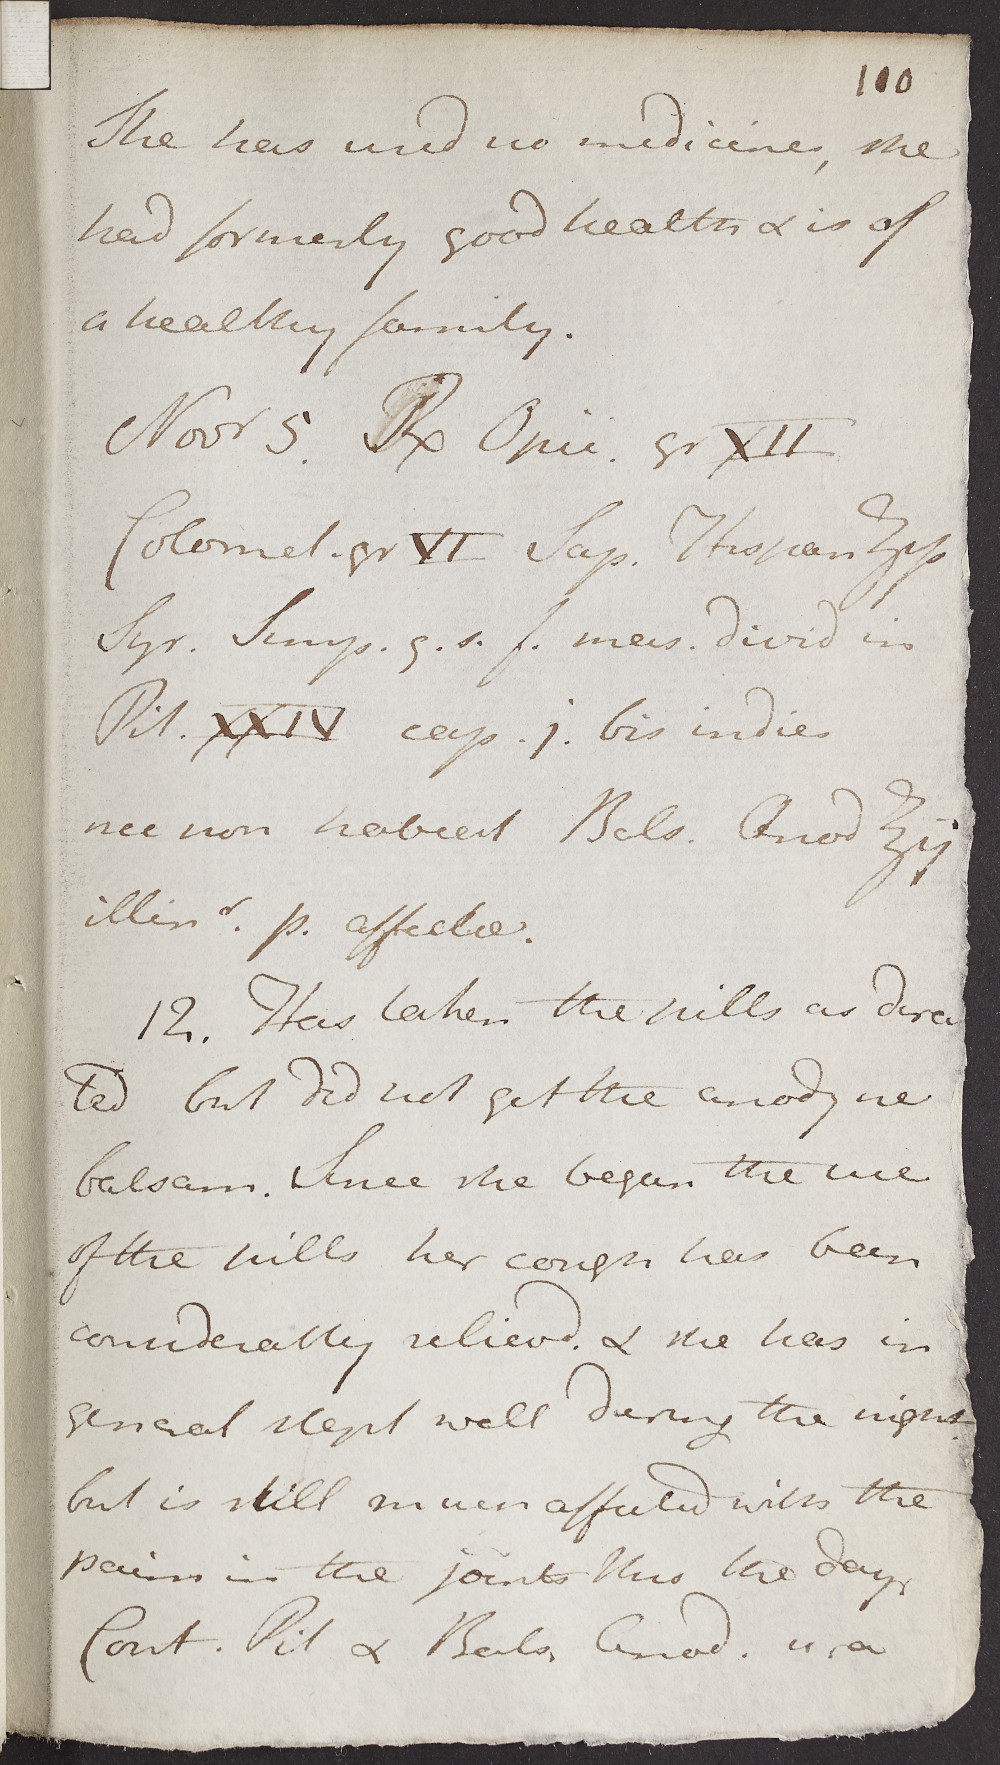 110
She has used no medicines, she
had formerly good health & is of
a healthy family.
Novr 5. Rx Opii. gr XII
Colomel. gr VI Sap. Hispan ʒjſs
Syr. Simp. q. s. f. mas. divid in
Pil. XXIV cap. j. bis indies
nec non habeat Bals. Anod ℥ij
illinr. p. affectæ.
12. Has taken the pills as direc
ted but did not get the anodyne
balsam. Since she began the use
of the pills her cough has been
considerably relievd. & she has in
general slept well during the night
but is still much affected with the
pain in the joints thro the day,
Cont. Pil & Bals. Anod.